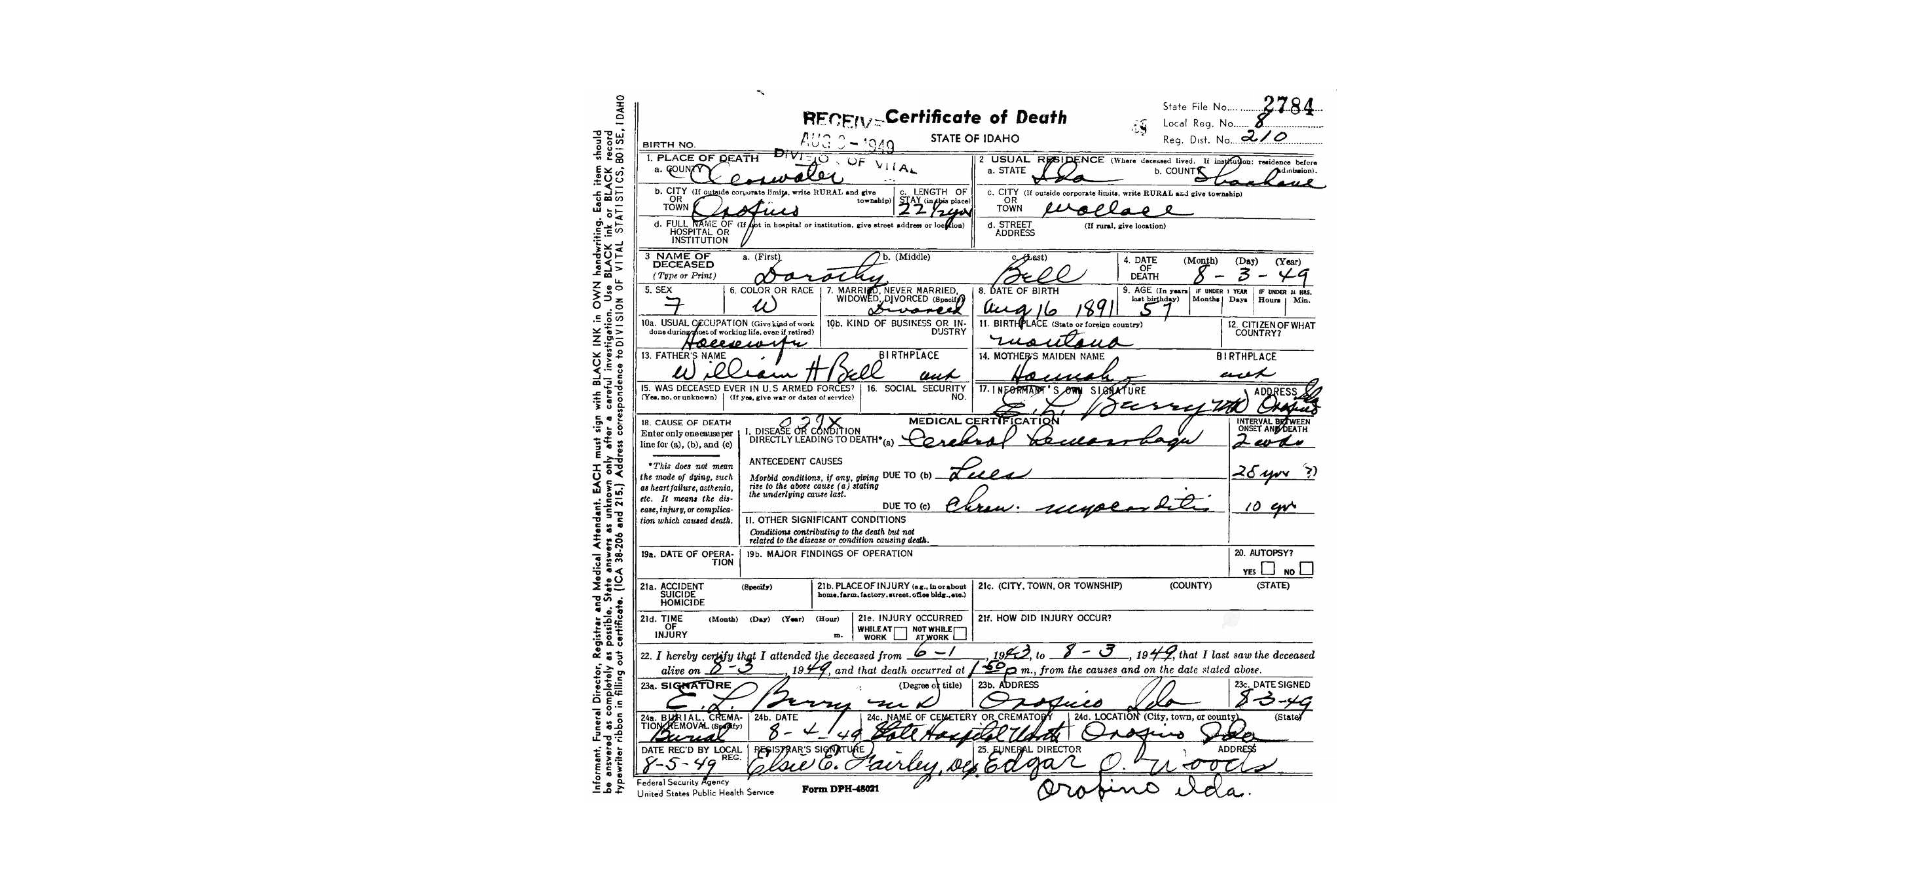 Informant, Funeral Director, Registrar and Medical Attendant. EACH must sign with BLACK INK in OWN handwriting. Each item should
be answered as completely as possible. State answers as unknown only after a careful investigation. Use BLACK ink or BLACK record
typewriter ribbon in filling out certificate. (ICA 38-206 and 215.) Address correspondence to DIVISION OF VITAL STATISTICS, BOISE, IDAHO
State File No. 2784
RECEIV Certificate of Death
Local Reg. No. 8
AUG - 1949 STATE OF IDAHO
Reg. Dist. No. 210
BIRTH NO.
DIVISION OF VITAL
1. PLACE OF DEATH
a. COUNTY Clearwater
2 USUAL RESIDENCE (Where deceased lived. If institution: residence before admission).
a. STATE Ida b. COUNTY Shoshone
b. CITY (If outside corporate limits, write RURAL and give township)
OR
TOWN Orofino
c. LENGTH OF
STAY (in this place)
22 1/2 yrs
c. CITY (If outside corporate limits, write RURAL and give township)
OR
TOWN Wallace
d. FULL NAME OF (If not in hospital or institution, give street address or location)
HOSPITAL OR
INSTITUTION
d. STREET (If rural, give location)
ADDRESS
3 NAME OF
DECEASED
(Type or Print)
a. (First) b. (Middle) c. (Last)
Dorothy Bell
4. DATE
OF
DEATH
(Month) (Day) (Year)
8 - 3 - 49
5. SEX
F
6. COLOR OR RACE
W
7. MARRIED, NEVER MARRIED,
WIDOWED, DIVORCED (Specify)
Divorced
8. DATE OF BIRTH
Aug 16 1891
9. AGE (In years
last birthday)
57
IF UNDER 1 YEAR
Months Days
IF UNDER 24 HRS.
Hours Min.
10a. USUAL OCCUPATION (Give kind of work
done during most of working life, even if retired)
Housewife
10b. KIND OF BUSINESS OR IN-
DUSTRY
11. BIRTHPLACE (State or foreign country)
Montana
12. CITIZEN OF WHAT
COUNTRY?
13. FATHER'S NAME BIRTHPLACE
William H Bell unk
14. MOTHER'S MAIDEN NAME BIRTHPLACE
Hannah unk
15. WAS DECEASED EVER IN U.S ARMED FORCES?
(Yes, no, or unknown) (If yes, give war or dates of service)
16. SOCIAL SECURITY
NO.
17. INFORMANT'S OWN SIGNATURE ADDRESS
E. L. Berry MD Orofino Ida
18. CAUSE OF DEATH
Enter only one cause per
line for (a), (b), and (c)
029X
MEDICAL CERTIFICATION
INTERVAL BETWEEN
ONSET AND DEATH
I. DISEASE OR CONDITION
DIRECTLY LEADING TO DEATH*(a) Cerebral hemorrhage 2 wks
*This does not mean
the mode of dying, such
as heart failure, asthenia,
etc. It means the dis-
ease, injury, or complica-
tion which caused death.
ANTECEDENT CAUSES
Morbid conditions, if any, giving
rise to the above cause (a) stating
the underlying cause last.
DUE TO (b) Lues 25 yrs (?)
DUE TO (c) Chron. myocarditis 10 yrs
II. OTHER SIGNIFICANT CONDITIONS
Conditions contributing to the death but not
related to the disease or condition causing death.
19a. DATE OF OPERA-
TION
19b. MAJOR FINDINGS OF OPERATION
20. AUTOPSY?
YES NO
21a. ACCIDENT (Specify)
SUICIDE
HOMICIDE
21b. PLACE OF INJURY (e.g., in or about
home, farm, factory, street, office bldg., etc.)
21c. (CITY, TOWN, OR TOWNSHIP) (COUNTY) (STATE)
21d. TIME (Month) (Day) (Year) (Hour)
OF
INJURY m.
21e. INJURY OCCURRED
WHILE AT WORK NOT WHILE AT WORK
21f. HOW DID INJURY OCCUR?
22. I hereby certify that I attended the deceased from 6-1, 1943, to 8-3, 1949, that I last saw the deceased
alive on 8-3, 1949, and that death occurred at 1:50 p m., from the causes and on the date stated above.
23a. SIGNATURE (Degree of title)
E. L. Berry M D
23b. ADDRESS
Orofino Ida
23c. DATE SIGNED
8-3-49
24a. BURIAL, CREMA-
TION, REMOVAL (Specify)
Burial
24b. DATE
8-4-49
24c. NAME OF CEMETERY OR CREMATORY
State Hospital North
24d. LOCATION (City, town, or county) (State)
Orofino Ida
DATE REC'D BY LOCAL
REG.
8-5-49
REGISTRAR'S SIGNATURE
Elsie E. Fairley, Dep
25. FUNERAL DIRECTOR ADDRESS
Edgar O. Woods
Orofino Ida.
Federal Security Agency
United States Public Health Service
Form DPH-48021